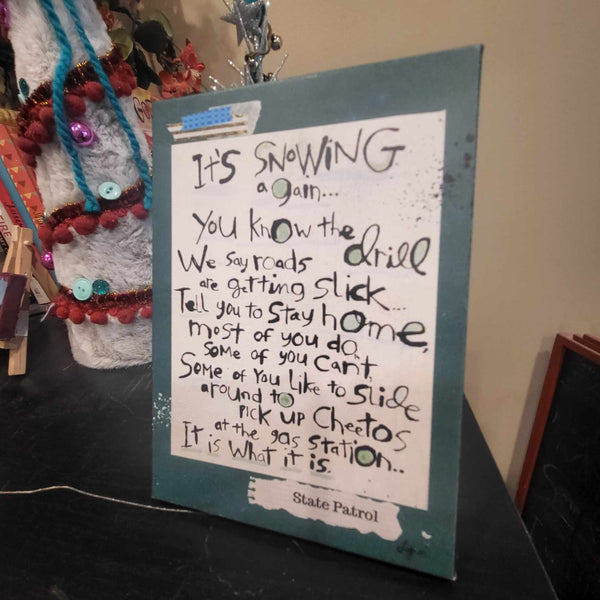 It's SNOWING
again...
You know the drill
We say roads
are getting slick...
Tell you to stay home,
most of you do,
some of you can't,
Some of You Like to slide
around to
PICK UP Cheetos
at the gas station..
It is what it is.
State Patrol